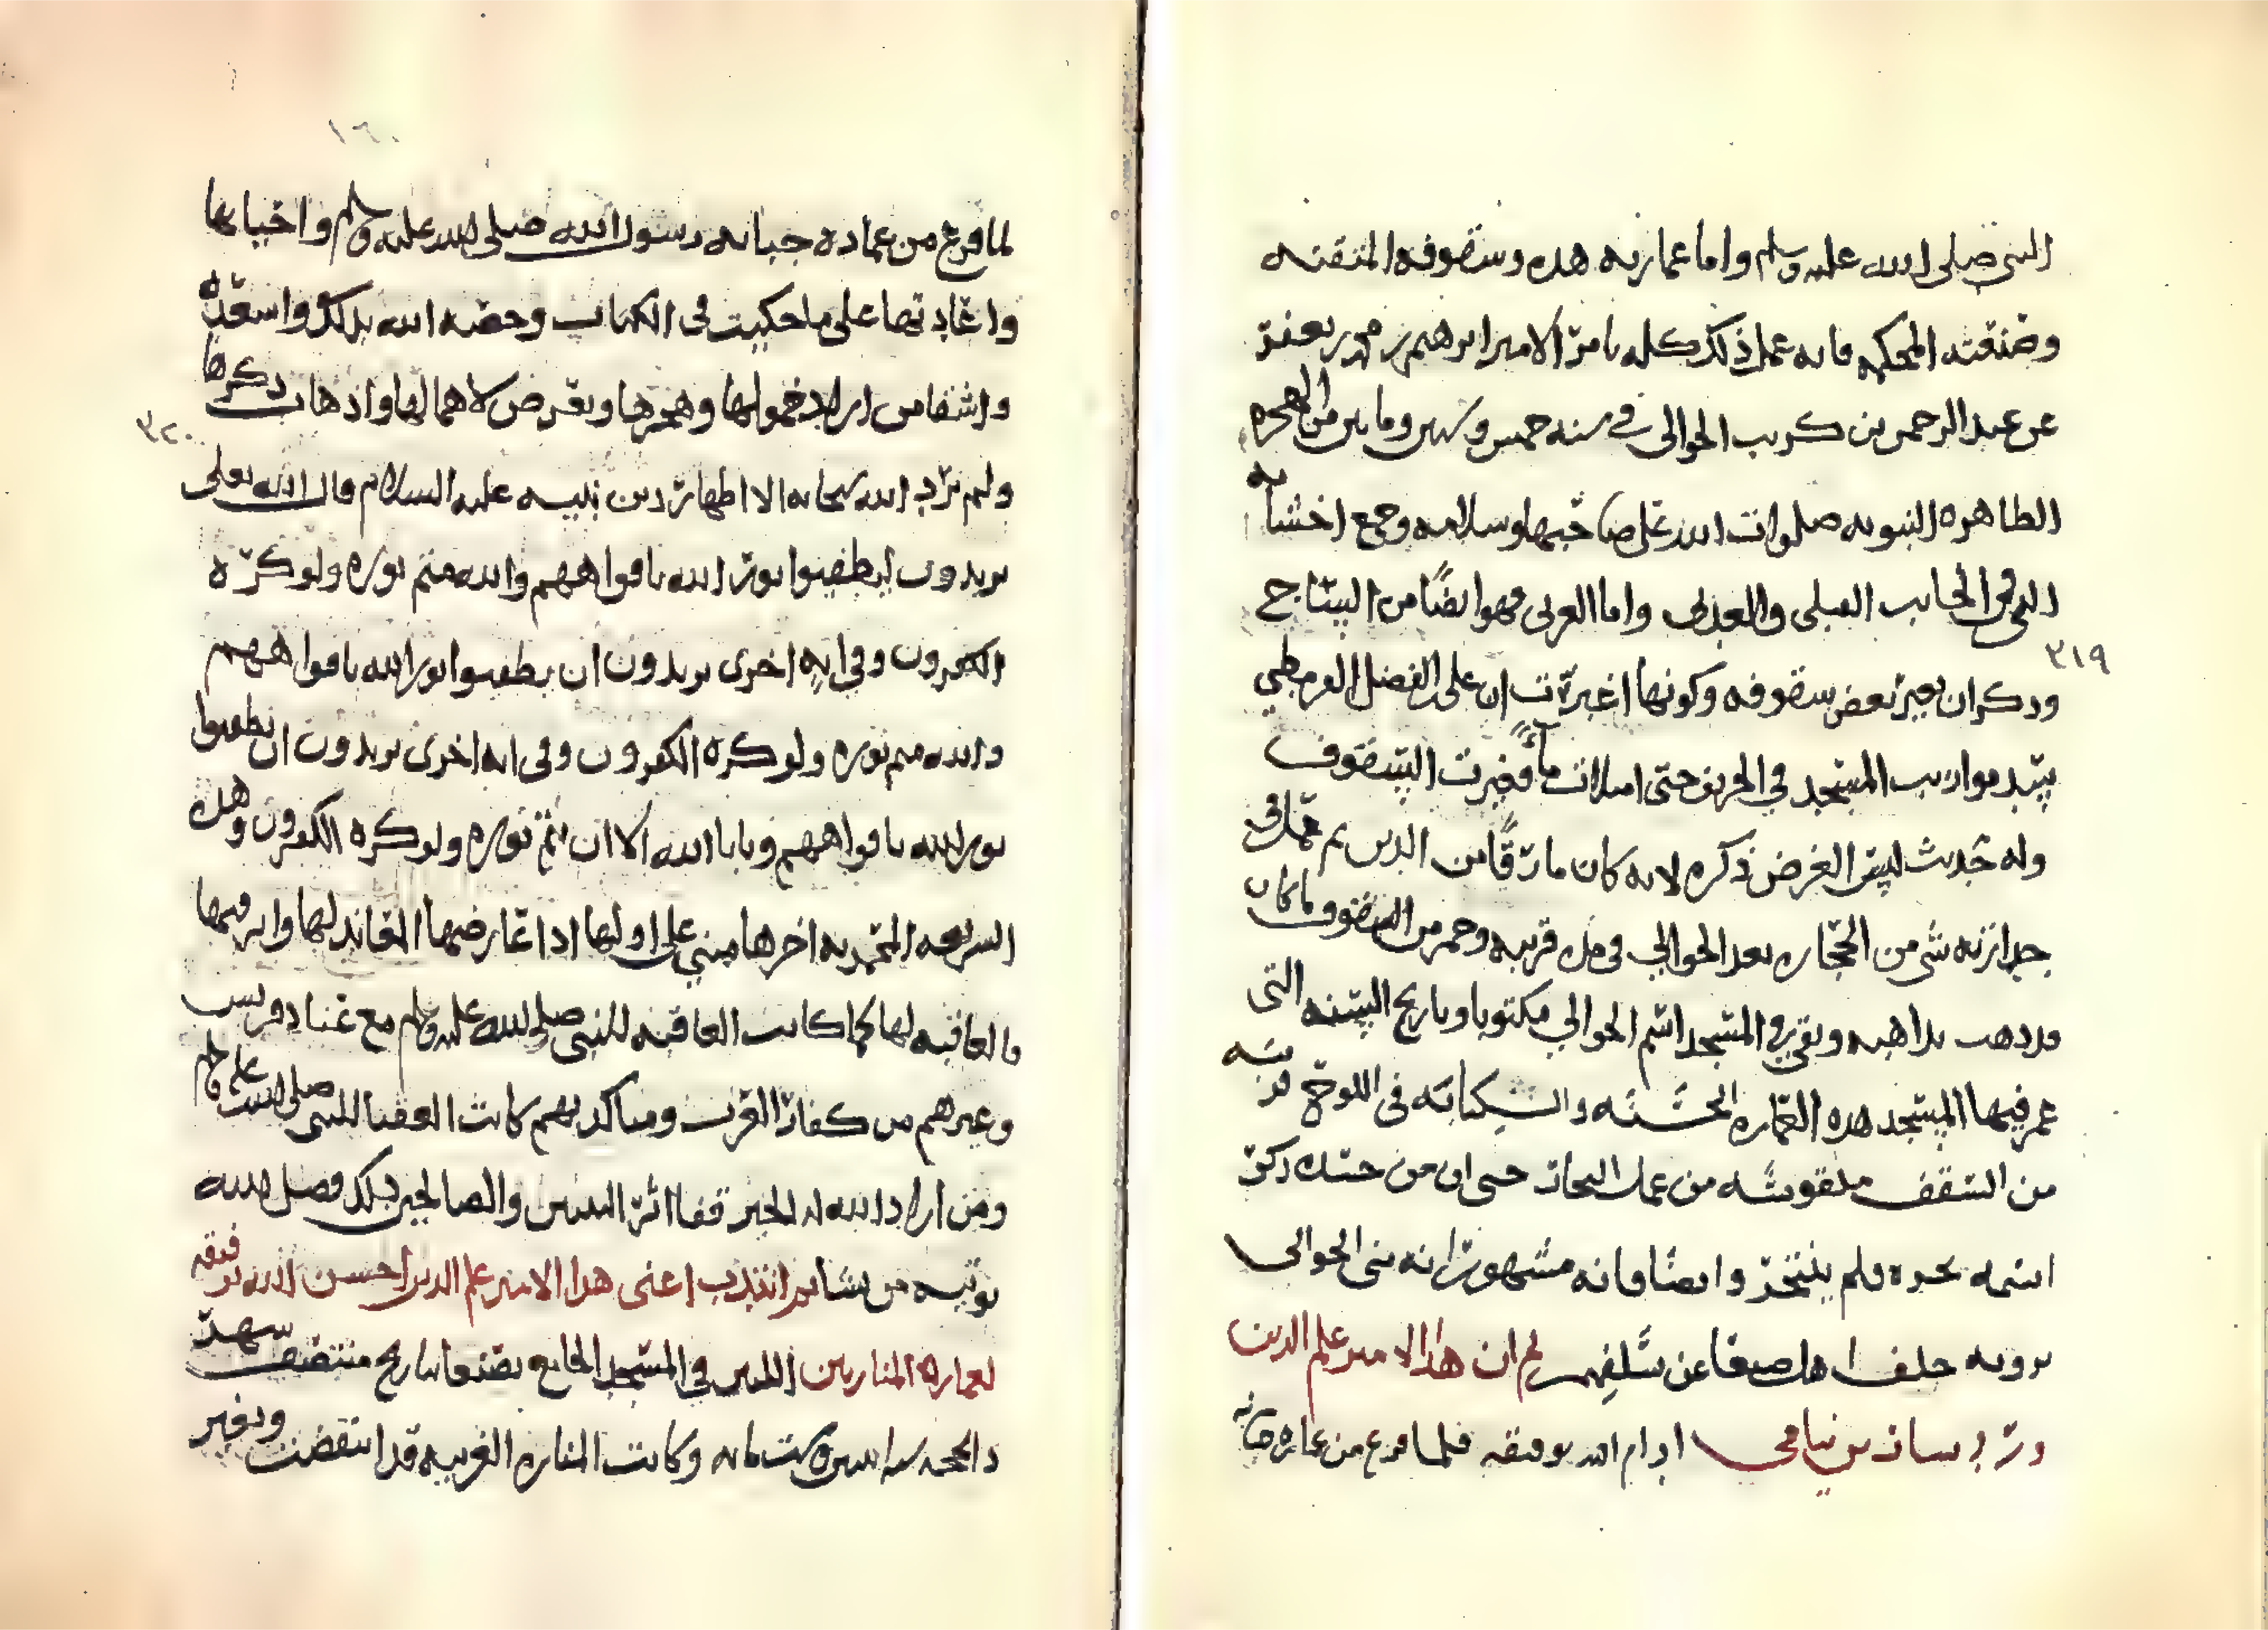 النبي صلى الله عليه وسلم واما عمارته هذه وسقوفه المتقنه
وصنعته المحكمه فانه عمل ذلك كله بامر الامير ابرهيم بن محمد بن يعفر
عن عبد الرحمن بن كريب الحوالي في سنه خمس وستين وماتين من الهجره
الطاهره النبويه صلوات الله على صاحبها وسلامه وجميع اخشابه
التي في الجانب القبلي والعدني واما الغربي فهو ايضًا من الساج
٣١٩
وذكر ان تغير بعض سقوفه وكونها اغبرت ان علي بن الفضل القرمطي
سد موازيب المسجد في الخريف حتى امتلات ماءً فغيرت السقوف
وله حديث ليس الغرض ذكره لانه كان مارقًا من الدين ثم عمل في
جدارته شي من الحجاره بعد الحوالي في مده قريبه وحمر من السقوف ما كان
قد ذهب بذاهبه وبقي في المسجد اسم الحوالي مكتوبا وتاريخ السنه التي
عمر فيها المسجد هذه العماره الحسنه والكتابه في اللوح قريبه
من السقف منقوشه من عمل النجار حتى ان من حسده ذكر
اسمه نجره فلم ينتجر وايضًا فانه مشهورًا انه بنى الحوالي
يرويه خلف اهل صنعا عن سلفهم ثم ان هذا الامير علم الدين
وردسار بن بيامي ادام الله توفيقه فلما فرغ من عماره جبانه
١٦٠
لما فرغ من عماره جبانه رسول الله صلى الله عليه وسلم واحياها
واعادتها على ما حكيت في الكتاب وخصه الله بذلك واسعده
واشقا من اراد خمولها وهجرها وتعرض لاهمالها واذهاب ذكرها
٣٢٠
ولم يرد الله سبحانه الا اظهار دين نبيه عليه السلام قال الله تعلى
يريدون ليطفيوا نور الله بافواههم والله متم نوره ولو كره
الكفرون وفي ايه اخرى يريدون ان يطفيوا نور الله بافواههم
والله متم نوره ولو كره الكفرون وفي ايه اخرى يريدون ان يطفيوا
نور الله بافواههم ويابا الله الا ان يتم نوره ولو كره الكفرون وهذه
الشريعه المحمديه اخرها مبني على اولها اذا عارضها المعاند لها وابر فيها
فالعاقبه لها كما كانت العاقبه للنبي صلى الله عليه وسلم مع عناد قريش
وغيرهم من كفار العرب ومناكدتهم كانت العقبا للنبي صلى الله عليه وسلم
ومن اراد الله له الخير قفا اثر النبيين والصالحين ذلك فضل الله
يوتيه من يشا ثم انتدب اعنى هذا الامير علم الدين احسن الله توفيقه
لعماره المنارتين اللتين في المسجد الجامع بصنعا بتاريخ منتصف شهر
ذالحجه سنه اثنين وست مايه وكانت المناره الغربيه قد انتقضت وتغير